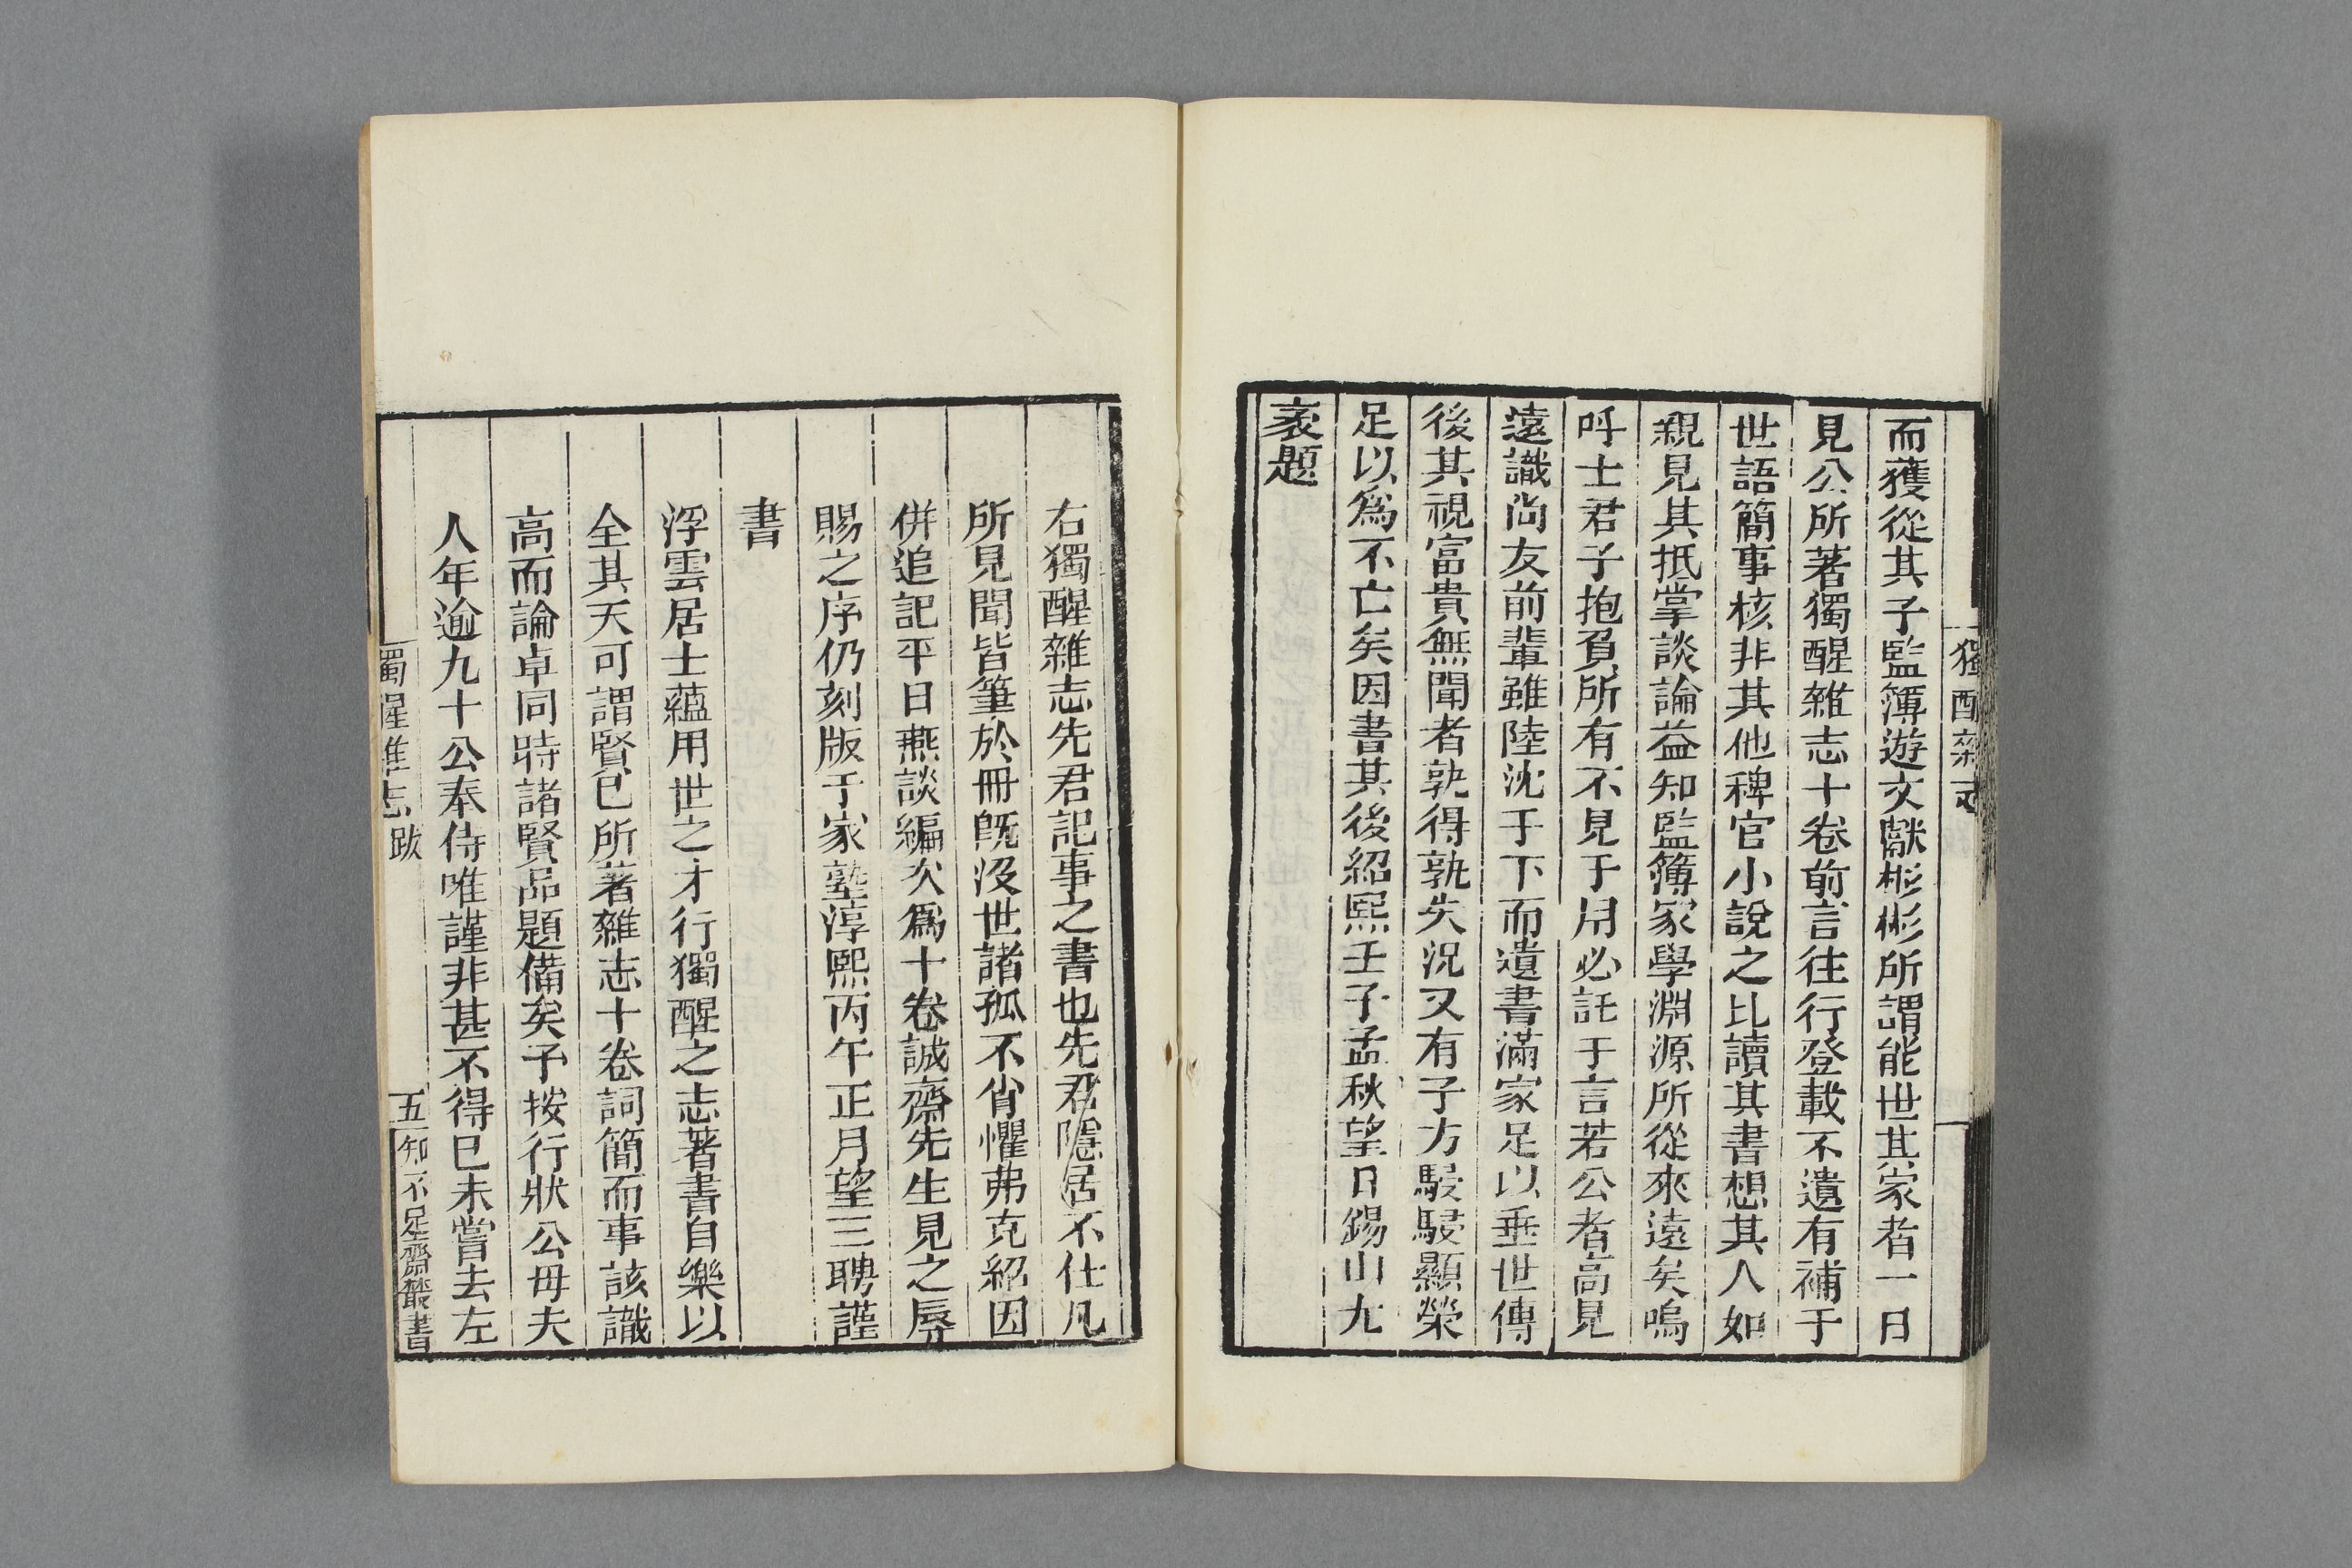 而獲從其子監簿遊文獻彬彬所謂能世其家者一日
見公所著獨醒雜志十卷前言往行登載不遺有補于
世語簡事核非其他稗官小說之比讀其書想其人如
親見其抵掌談論益知監簿家學淵源所從來遠矣嗚
呼士君子抱負所有不見于用必託于言若公者高見
遠識尚友前輩雖陸沈于下而遺書滿家足以垂世傳
後其視富貴無聞者孰得孰失況又有子方駸駸顯榮
足以爲不亡矣因書其後紹熙壬子孟秋望日錫山尤
袤題
右獨醒雜志先君記事之書也先君隱居不仕凡
所見聞皆筆於冊旣没世諸孤不肖懼弗克紹因
併追記平日燕談編次爲十卷誠齋先生見之辱
賜之序仍刻版于家塾淳熙丙午正月望三聘謹
書
浮雲居士蘊用世之才行獨醒之志著書自樂以
全其天可謂賢已所著雜志十卷詞簡而事該識
高而論卓同時諸賢品題備矣予按行狀公母夫
人年逾九十公奉侍唯謹非甚不得已未嘗去左
獨醒雜志 跋 五 知不足齋叢書